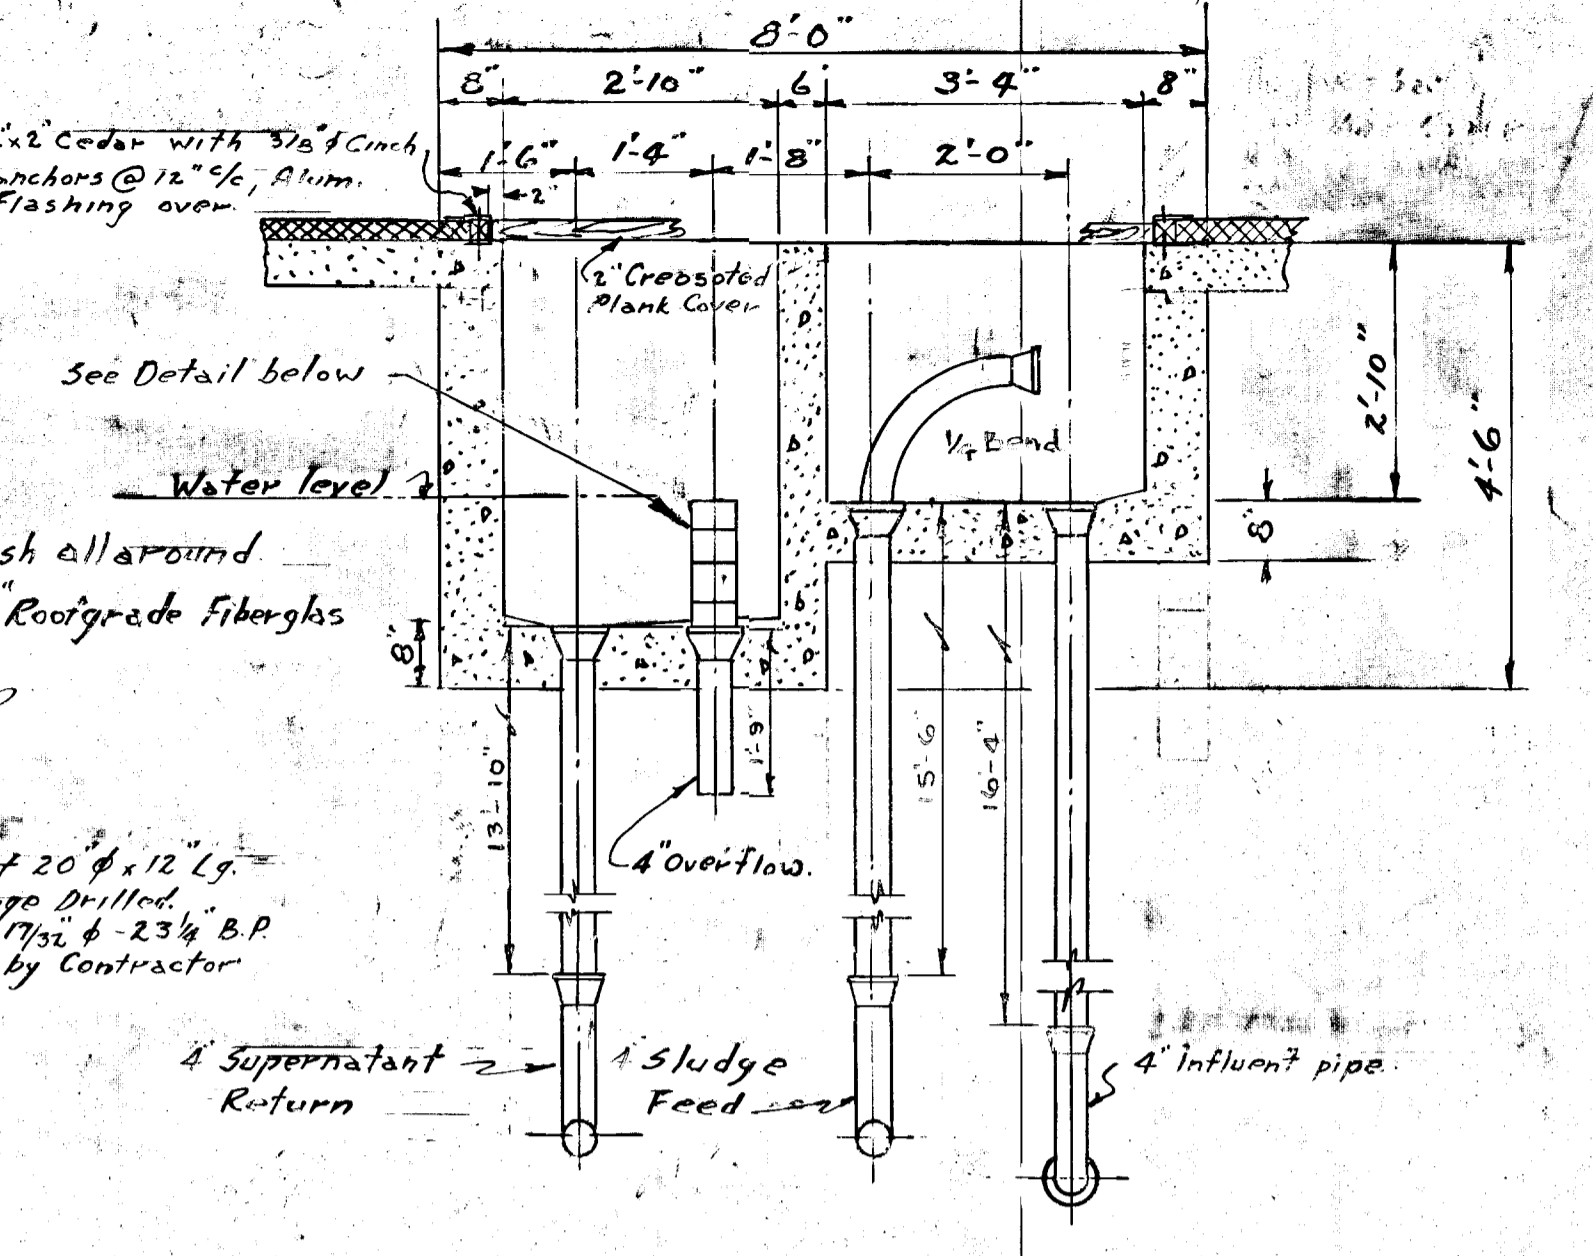 8'-0"
8" 2'-10" 6" 3'-4" 8"
"x2" Cedar with 3/8"ϕ Cinch
Anchors @ 12" c/c, Alum.
Flashing over.
1'-6" 1'-4" 1'-8" 2'-0"
2"
2" Creosoted
Plank Cover
See Detail below
1/4 Bend
2'-10"
4'-6"
Water level
8"
sh all around
" Roofgrade Fiberglas
8"
13'-10"
1'-9"
15'-6"
16'-4"
4" Overflow.
20"ϕ x 12" Lg.
ge Drilled.
17/32"ϕ - 23 1/4" B.P.
by Contractor
4" Supernatant
Return
4" Sludge
Feed
4" Influent pipe.